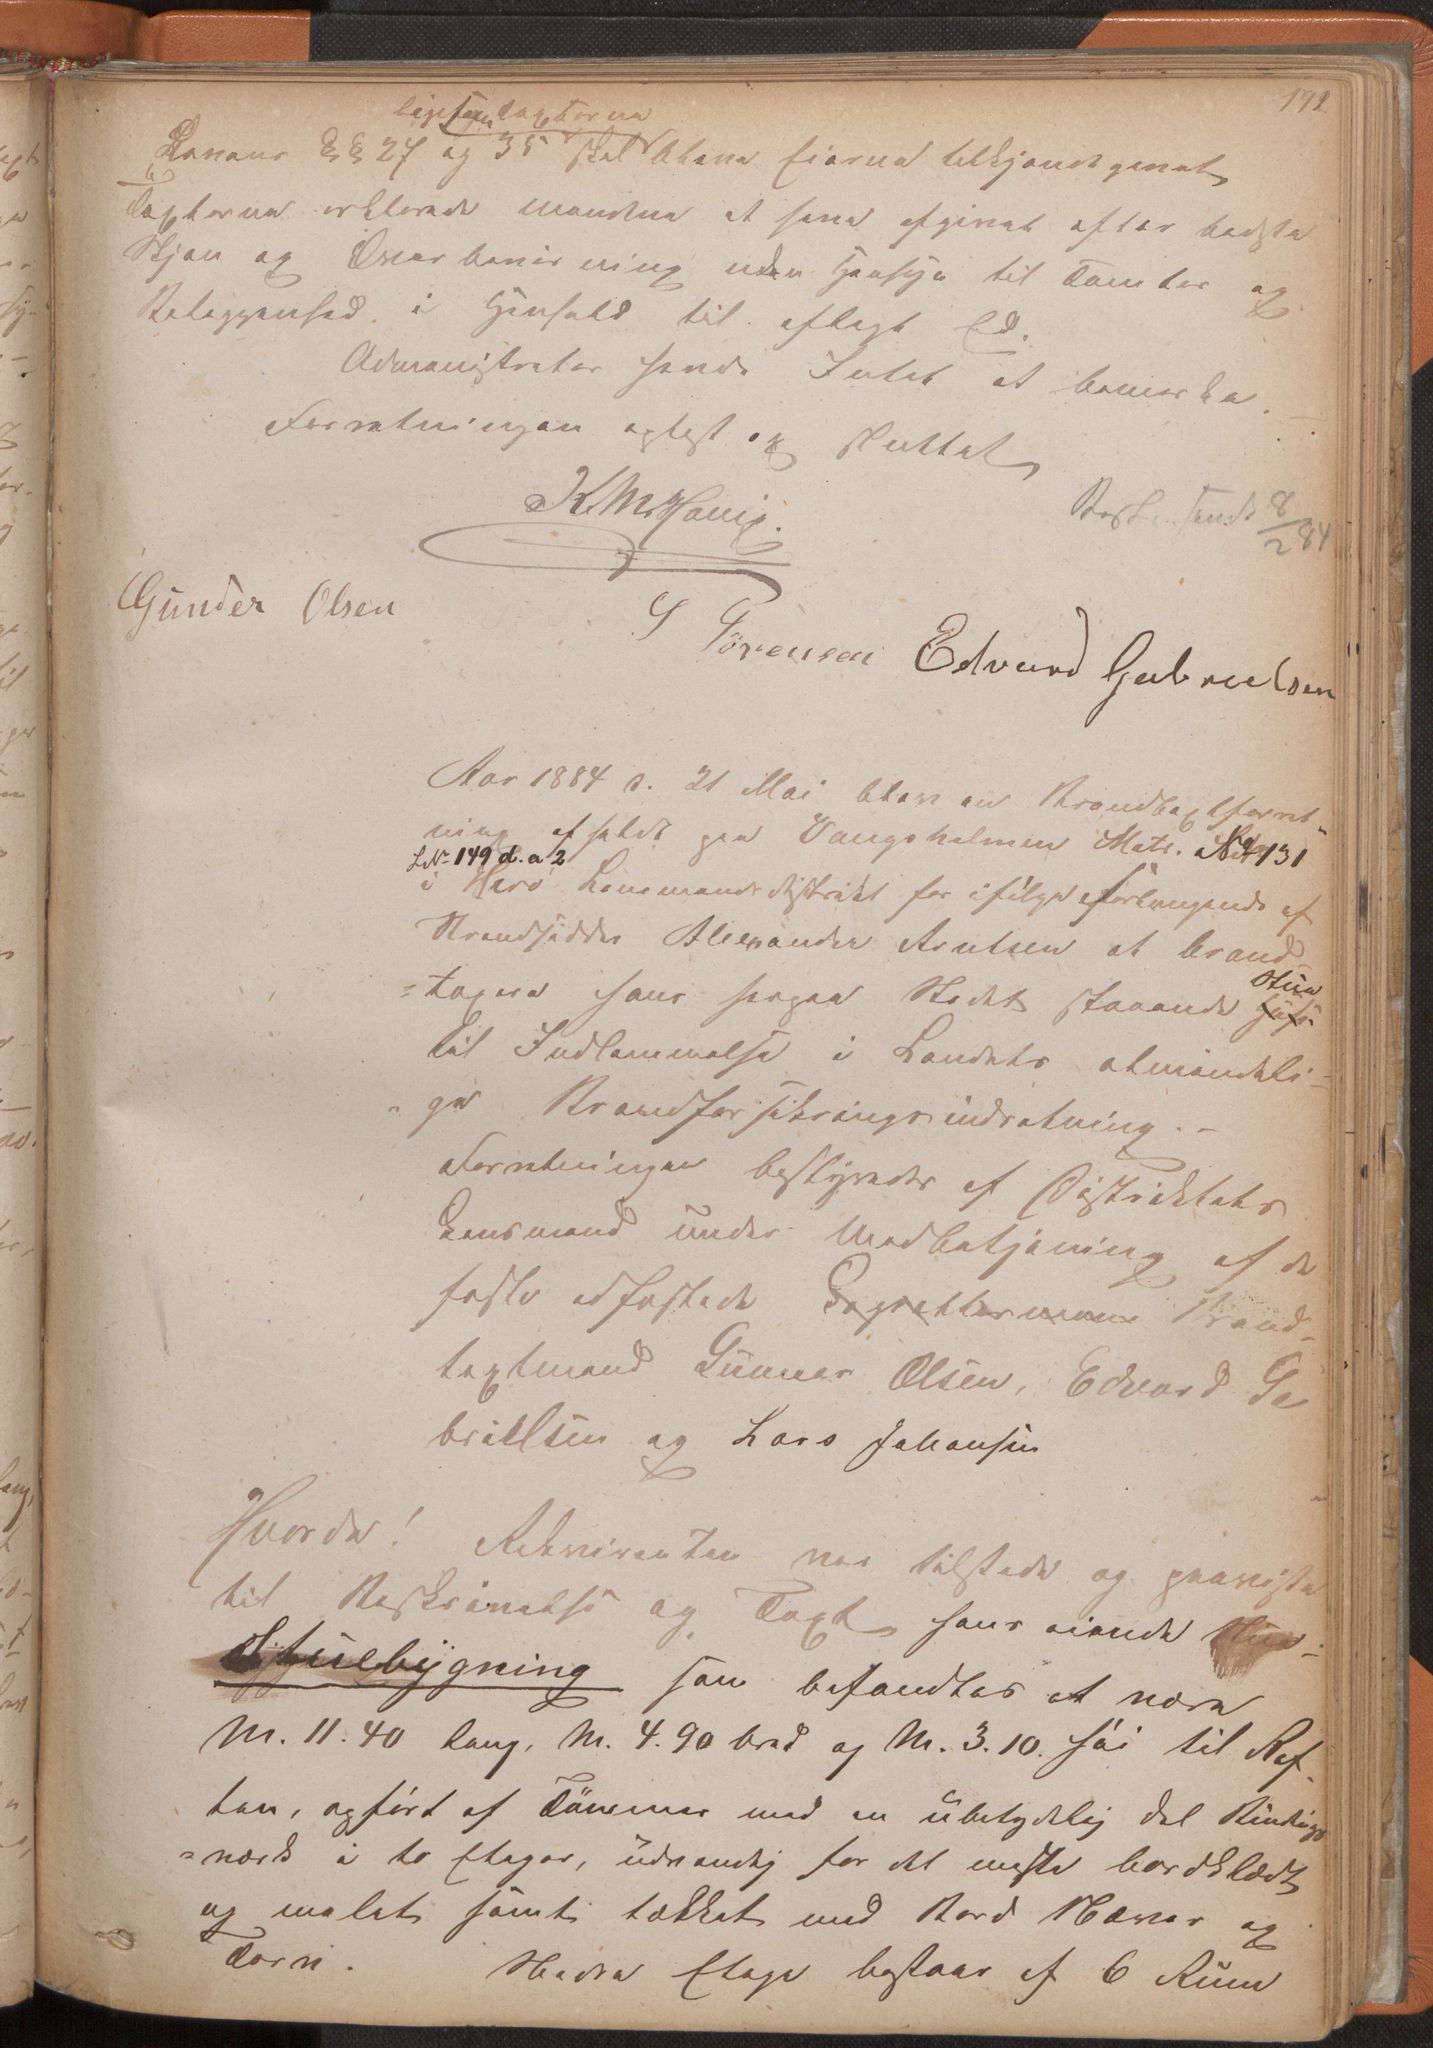 192
ligesom Taxterne
Lovens §§ 27 og 35 skal blevne Eierne tilkjendegivet
Taxterne erklærede Mændene at have afgivet efter bedste
Skjøn og Overbeviisning uden Hensyn til Tomter og
Beliggenhed i Henhold til aflagt Ed.
Administrator havde Intet at bemærke.
Forretningen oplæst og sluttet
K M Havig.
Besk. sendt 8/2 84
Gunder Olsen
S Sørensen Edvard Gabrielsen
Aar 1884 d. 21 Mai blev en Brandtaxtforret-
ning afholdt paa Vangsholmen Matr. No 131
LNo 149 d. a 2
i Herø Lensmandsdistrikt for ifølge Forlangende af
Strandsidder Alexander Arntsen at brand-
taxere hans herpaa Stedet staaende Stue
til Indlemmelse i Landets almindeli-
ge Brandforsikringsindretning. -
Forretningen bestyredes af Distriktets
Lensmand under Medbetjening af de
faste edfæstede Lagrettesmænd Brand-
taxtmænd Gunner Olsen, Edvard Ga
brielsen og Lars Johansen
Hvorda! Rekvirenten var tilstede og paaviste
til Beskrivelse og Taxt hans eiende Stue-
Stuebygning som befandtes at være
M. 11.40 lang, M. 4.90 bred og M. 3.10. høi til Raf-
ten, opført af Tømmer med en ubetydelig Del Bindings
værk i to Etager, udvendig for det meste bordklædt
og malet samt tækket med Bord Næver og
Torv. Nedre Etage bestaar af 6 Rum